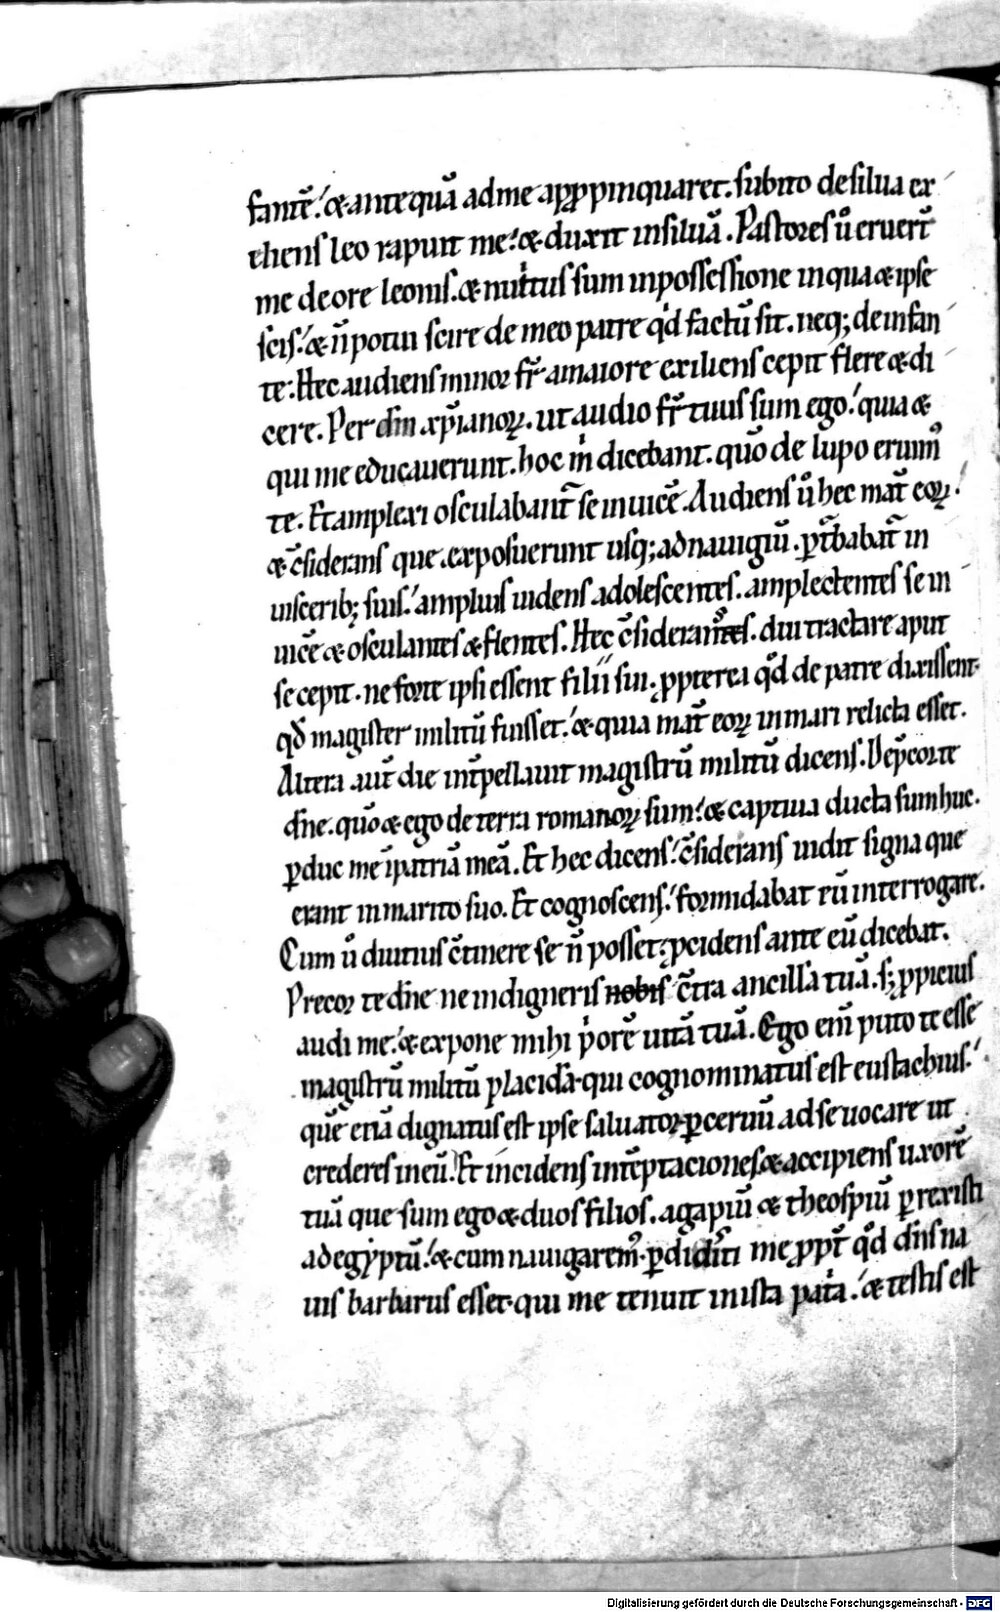 fantē. & antequā ad me apꝓpinquaret. subito de silua ex
iliens leo rapuit me. & duxit in siluā. Pastores ů eruert̄
me de ore leonis. & nutritus sum in possessione in qua & ipse
scis. & n̄ potui scire de meo patre qd factū sit. neq; de infan
te. Hec audiens minor fr̄ a maiore exiliens cepit flere & di
cere. Per dm̄ xp̄ianoꝝ. ut audio fr̄ tuus sum ego. quia &
qui me educauerunt. hoc m̊ dicebant. quō de lupo eruim᷒
te. Et amplexi osculabant̄ se inuicē. Audiens ů hec mat̄ eoꝝ.
& c̄siderans que exposuerunt usq; ad nauigiū. ꝑt̄babat̄ in
uisceribꝫ suis. amplius uidens adolescentes. amplectentes se in
uicē & osculantes & flentes. Hec c̄siderans. diu tractare aput
se cepit. ne forte ipsi essent filii sui. ꝓpterea qd̊ de patre dixissent
qd̊ magister militū fuisset. & quia mat̄ eoꝝ in mari relicta esset.
Altera aut̄ die int̄pellauit magistrū militū dicens. Dep̄cor te
dn̄e. quō & ego de terra romanoꝝ sum. & captiua ducta sum huc.
ꝑduc me ī patriā meā. Et hec dicens. c̄siderans uidit signa que
erant in marito suo. Et cognoscens. formidabat eū interrogare.
Cum ů diutius c̄tinere se n̄ posset. ꝓcidens ante eū dicebat.
Precor te dn̄e ne indigneris nobis c̄tra ancillā tuā. sꝫ ꝓpicius
audi me. & expone mihi p̊orē uitā tuā. Ego eni̅ puto te esse
magistrū militū placidā. qui cognominatus est eustachius.
quē etiā dignatus est ipse saluator. ꝑ ceruū ad se uocare ut
crederes in eū. Et incidens in tēptaciones. & accipiens uxorē
tuā que sum ego & duos filios. agapiū & theospiū ꝑrexisti
ad egyptū. & cum nauigarem᷒. ꝑdidisti me ꝓpt̄ qd̊ dn̄s na
uis barbarus esset. qui me tenuit in ista pat̊a. & testis est
Digitalisierung gefördert durch die Deutsche Forschungsgemeinschaft - DFG